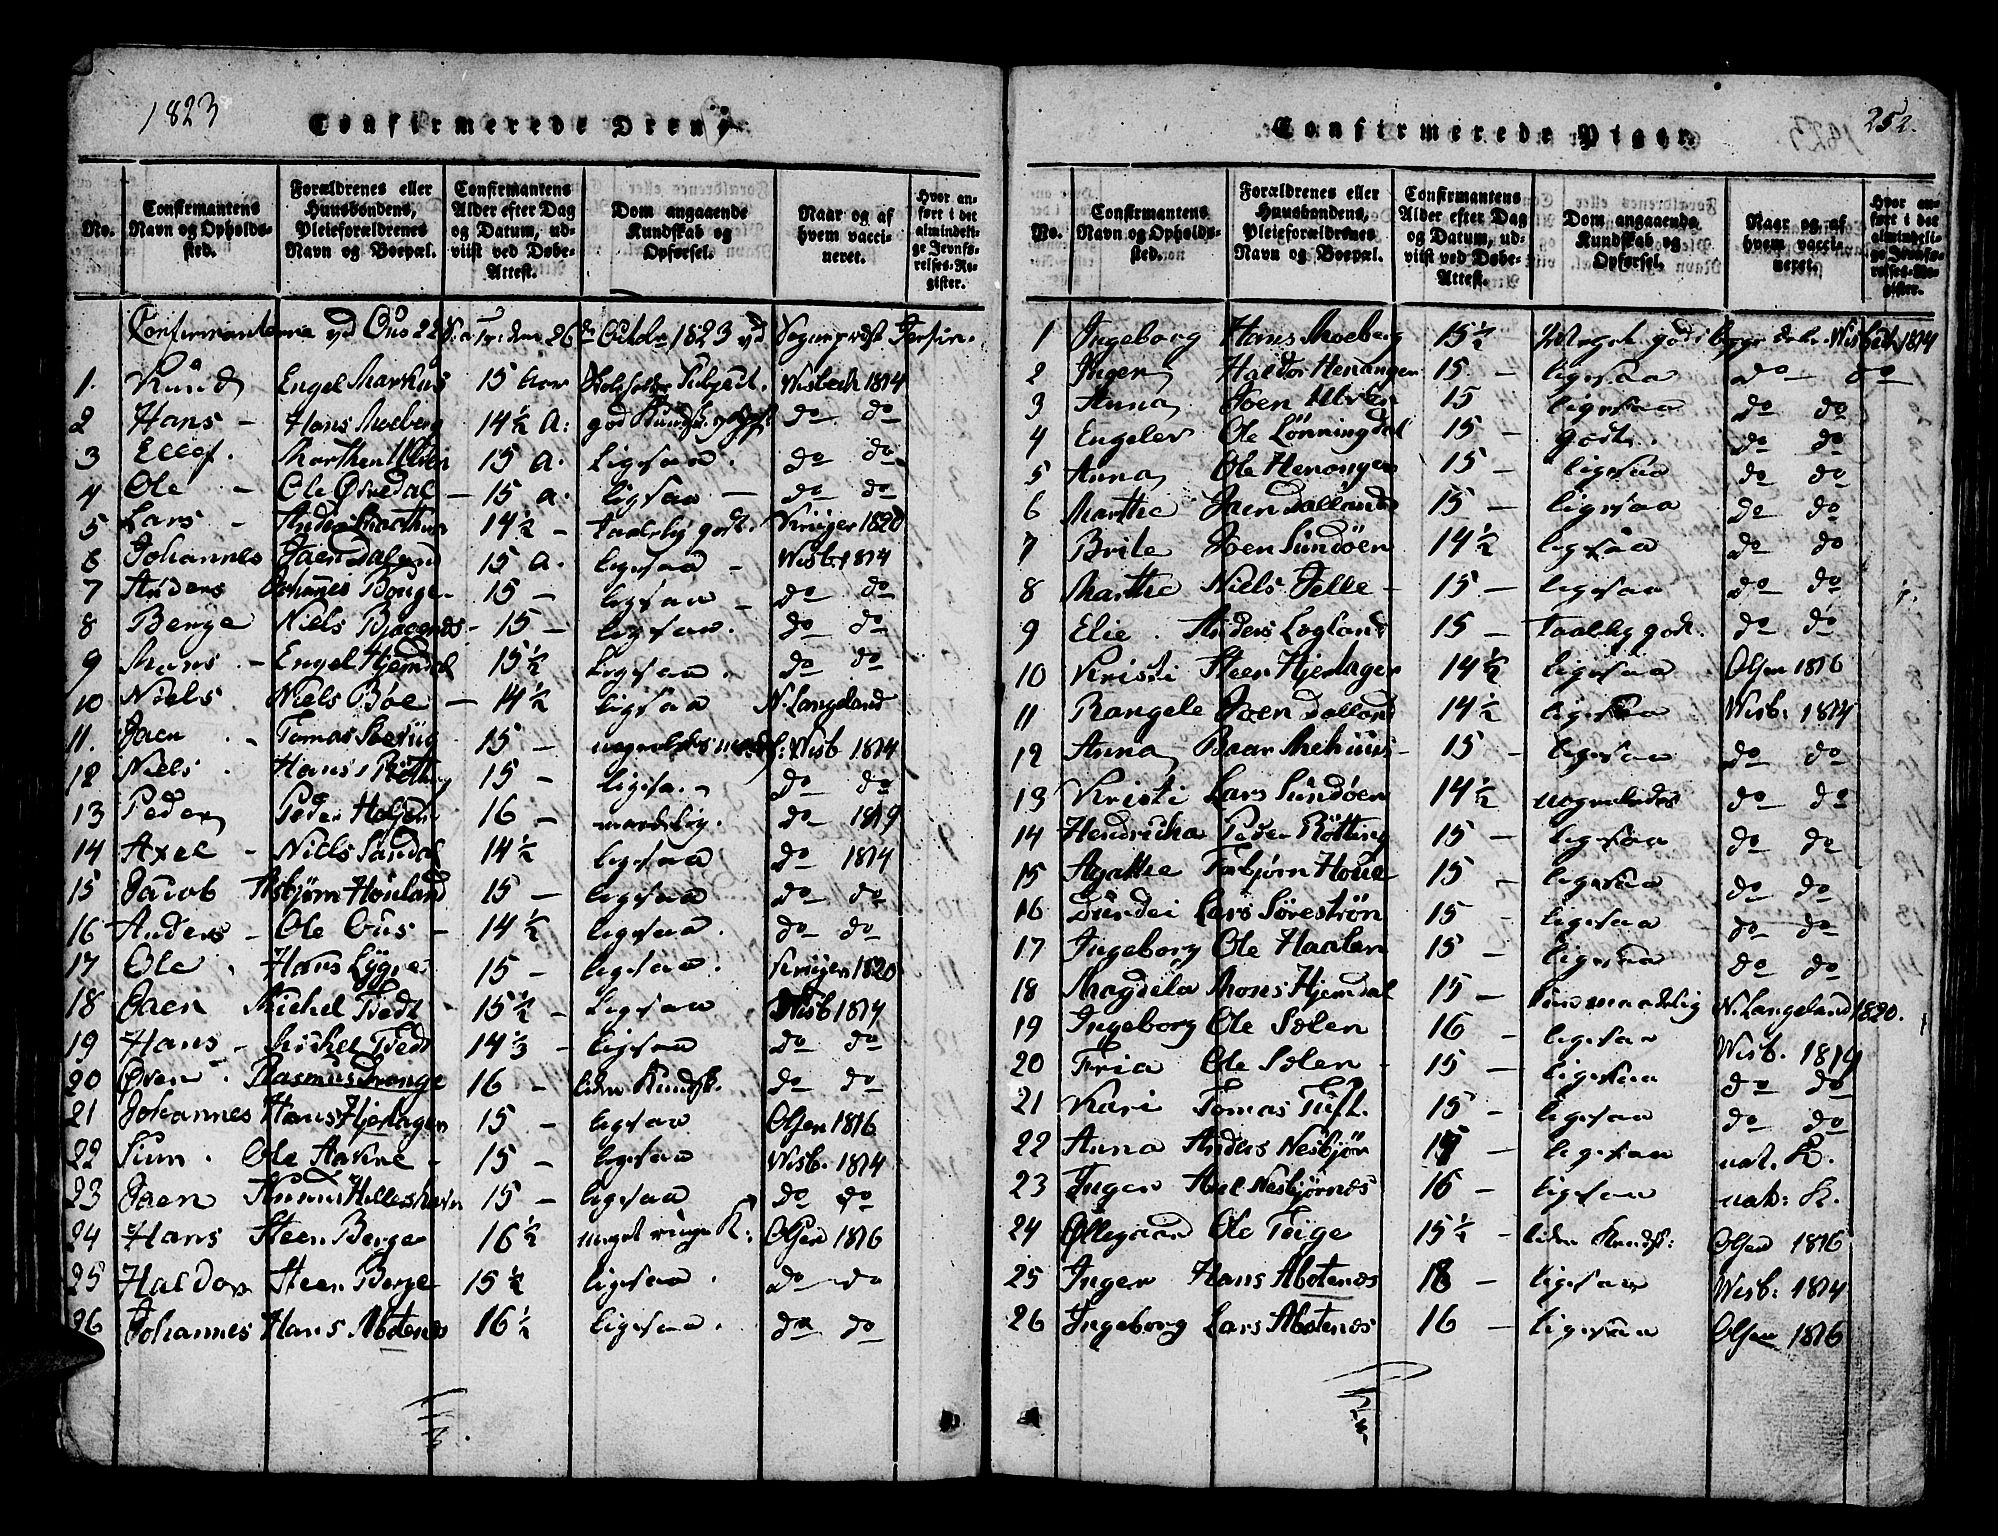 1823
Confirmerede Drenge.
No. Confirmantens Navn og Opholdssted. Forældrenes eller Huusbondens, Pleieforældrenes Navn og Boepæl. Confirmantens Alder efter Dag og Datum, udviist ved Døbe-Attest. Dom angaaende Kundskab og Opførsel. Naar og af hvem vaccineret. Hvor anført i det almindelige Jevnførelses-Register.
Confirmanterne vd Ous 22 S: a: Tr: den 26de Octbr 1823 vd Sognepræst
1. Knud Engel Markus 15 Aar Wisbech 1814
2 Hans - Hans Moeberg 14½ A: god Kundsk. do do
3 Ellef. Marthen 15 A. Ligesaa. do do
4 Ole - Ole Øvredal - 15 a. ligesaa - do do
5 Lars - Anders 14½ - taalelig godt. Krüger 1820
6 Johannes Joen Daland 15 A. ligesaa - Wisb. 1814
7 Anders Johannes Bonge - 15 - ligesaa - do do
8 Berge Niels Bjaaenes - 15 - ligesaa. do do
9 Mons - Engel Hjemdal 15½ ligesaa. do do
10 Niels Niels Bøe - 14½ ligesaa N. Langeland
11. Joen - Tomas 15 - Wisb 1814
12 Niels. Hans Røtting 15 - ligesa. - do do
13 Peder Peder 16 - maadelig. do 1819
14 Axel - Niels Sandal 14½ ligesaa do 1814
15 Jacob Asbjørn Houland 15 - ligesaa do do
16 Anders - Ole Ous - 14½ ligesaa. do do
17 Ole. Hans Lygre 15 - ligesaa. Krüger 1820
18 Joen Michel Tvedt 15½ - Ligesaa Wisb 1814
19 Hans - Michel Tvedt 14⅓ - ligesaa do do
20 Øven. Rasmus Drange 16 - liden Kundsk. do do
21 Johannes Hans Hjertager 15 - ligesaa Olsen 1816
22 Ole 15 - ligesaa Wisb. 1814
23 Joen 15 - ligesaa do do
24 Hans Steen Berge 16½ meget ringe K: Olsen 1816
25 Haldor Steen Berge 15½ ligesaa. do do
26 Johannes Hans Abotenes 16½ ligesaa. do do
252.
Confirmerede Piger.
No. Confirmantens Navn og Opholdssted. Forældrenes eller Huusbondens, Pleieforældrenes Navn og Boepæl. Confirmantens Alder efter Dag og Datum, udviist ved Døbe-Attest. Dom angaaende Kundskab og Opførsel. Naar og af hvem vaccineret. Hvor anført i det almindelige Jevnførelses-Register.
1 Ingeborg Hans Moeberg 15½ Meget god i begge dele. Wisbech 1814
2 Inger Haldor Henanger 15 - ligesaa do do
3 Anna Joen 15 ligesaa do do
4 Engelev Ole Lønningdal 15 - godt. do do
5 Anna Ole Henonger 15 - ligesaa do do
6 Marthe Joen Dalland 15 - ligesaa do do
7 Brite Joen Sundøen 14½ ligesaa do do
8 Marthe Niels Felle - 15 - ligesaa do do
9 Elie. Anders Løgland 15 - Taalelig god. do do
10 Kristi Steen Hjertager 14½ ligesaa Olsen 1816
11 Rangele Joen Dalland 14½ - ligesaa Wisb: 1814
12 Anna Baar Mehuus - 15 - ligesaa do do
13 Kristi Lars Sundøen 14½ nogenledes do do
14 Hendricha Peder Røtting 15 - ligesaa do do
15 Agathe Torbjørn Houe 15 - ligesaa do do
16 Lars Sørestrøn 15 - ligesaa do do
17 Ingeborg Ole Haalen 15 - ligesaa do do
18 Magdela Mons Hjemdal 15 - maadelig N. Langeland 1820.
19 Ingeborg Ole Solen 16 - ligesaa Wisb. 1819
20 Fria Ole Solen - 15 - ligesaa do do
21 Kari Tomas Tuft. 15 - ligesaa do do
22 Anna Anders Nesbjør 15 - ligesaa nat. K.
23 Inger Axel Nesbjørnes 16 - ligesaa nat: K.
24 Øllegaard Ole Teige 15½ - liden Kundsk: Olsen 1816
25 Inger Hans Abotenes 18 - ligesaa Wisb: 1814
26 Ingeborg Lars Abotenes 16 - ligesaa Olsen 1816